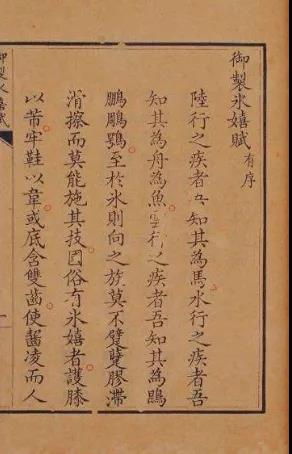 御製氷嬉賦有序
陸行之疾者吾知其為馬水行之疾者吾
知其為舟為魚雲行之疾者吾知其為鵾
鵬鵰鶚至於氷則向之族莫不躄躠膠滯
滑擦而莫能施其技國俗有氷嬉者護膝
以芾牢鞋以韋或底含雙齒使齧凌而人
御製氷嬉賦